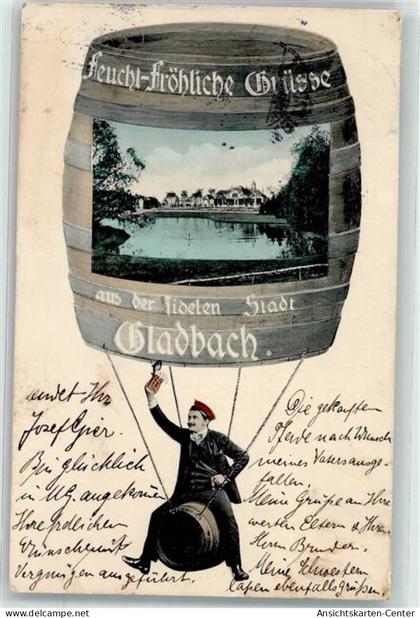 Feucht-Fröhliche Grüsse
aus der fidelen Stadt
Gladbach.
sendet Ihr
Josef Gier.
Bin glücklich
in M.G. angekommen
Ihre
Wünsche
Vergnügen ausgeführt.
Die gekauften
Pferde nach Wunsch
meines Vaters ausge-
fallen.
Meine Grüße an Ihre
werten Eltern & Ihren
Herrn Bruder.
Meine Schwestern
laßen ebenfalls grüßen
Ansichtskarten-Center